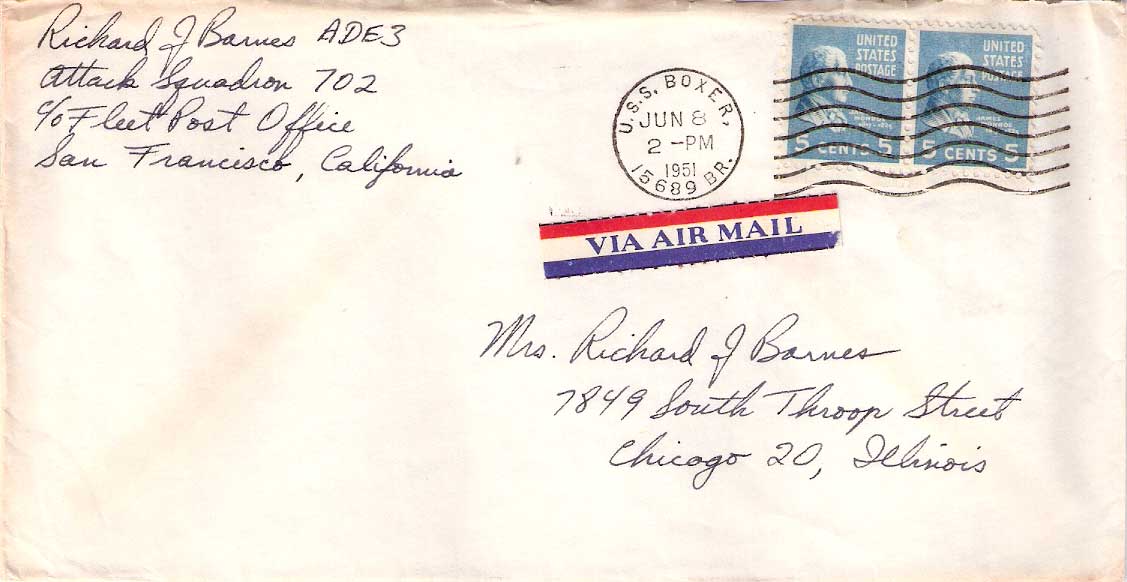 Richard J Barnes ADE3
Attack Squadron 702
c/o Fleet Post Office
San Francisco, California
U.S.S. BOXER,
JUN 8
2-PM
1951
15689 BR.
UNITED
STATES
POSTAGE
JAMES
MONROE
5 CENTS 5
UNITED
STATES
POSTAGE
JAMES
MONROE
5 CENTS 5
VIA AIR MAIL
Mrs. Richard J Barnes
7849 South Throop Street
Chicago 20, Illinois